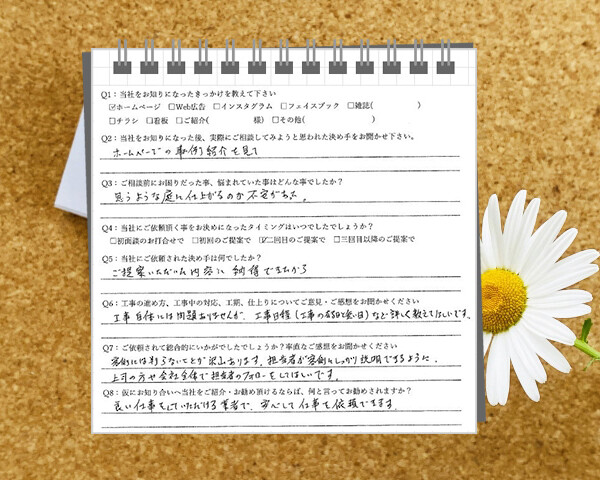 Q1：当社をお知りになったきっかけを教えて下さい
☑ホームページ □Web広告 □インスタグラム □フェイスブック □雑誌( )
□チラシ □看板 □ご紹介( 様) □その他( )
Q2：当社をお知りになった後、実際にご相談してみようと思われた決め手をお聞かせ下さい。
ホームページの事例紹介を見て
Q3：ご相談前にお困りだった事、悩まれていた事はどんな事でしたか？
思うような庭に仕上がるのか不安があった。
Q4：当社にご依頼頂く事をお決めになったタイミングはいつでしたでしょうか？
□初面談のお打合せで □初回のご提案で ☑二回目のご提案で □三回目以降のご提案で
Q5：当社にご依頼された決め手は何でしたか？
ご提案いただいた内容に納得できたから
Q6：工事の進め方、工事中の対応、工期、仕上りについてご意見・ご感想をお聞かせください
工事自体には問題ありませんが、工事日程(工事の 日)など詳しく教えてほしいです。
Q7：ご依頼されて総合的にいかがでしたでしょうか？率直なご感想をお聞かせください
客側には判らないことが沢山あります。担当者が客側にしっかり説明できるように、
上司の方や会社全体で担当者のフォローをしてほしいです。
Q8：仮にお知り合いへ当社をご紹介・お勧め頂けるならば、何と言ってお勧めされますか？
良い仕事をしていただける業者で、安心して仕事を依頼できます。